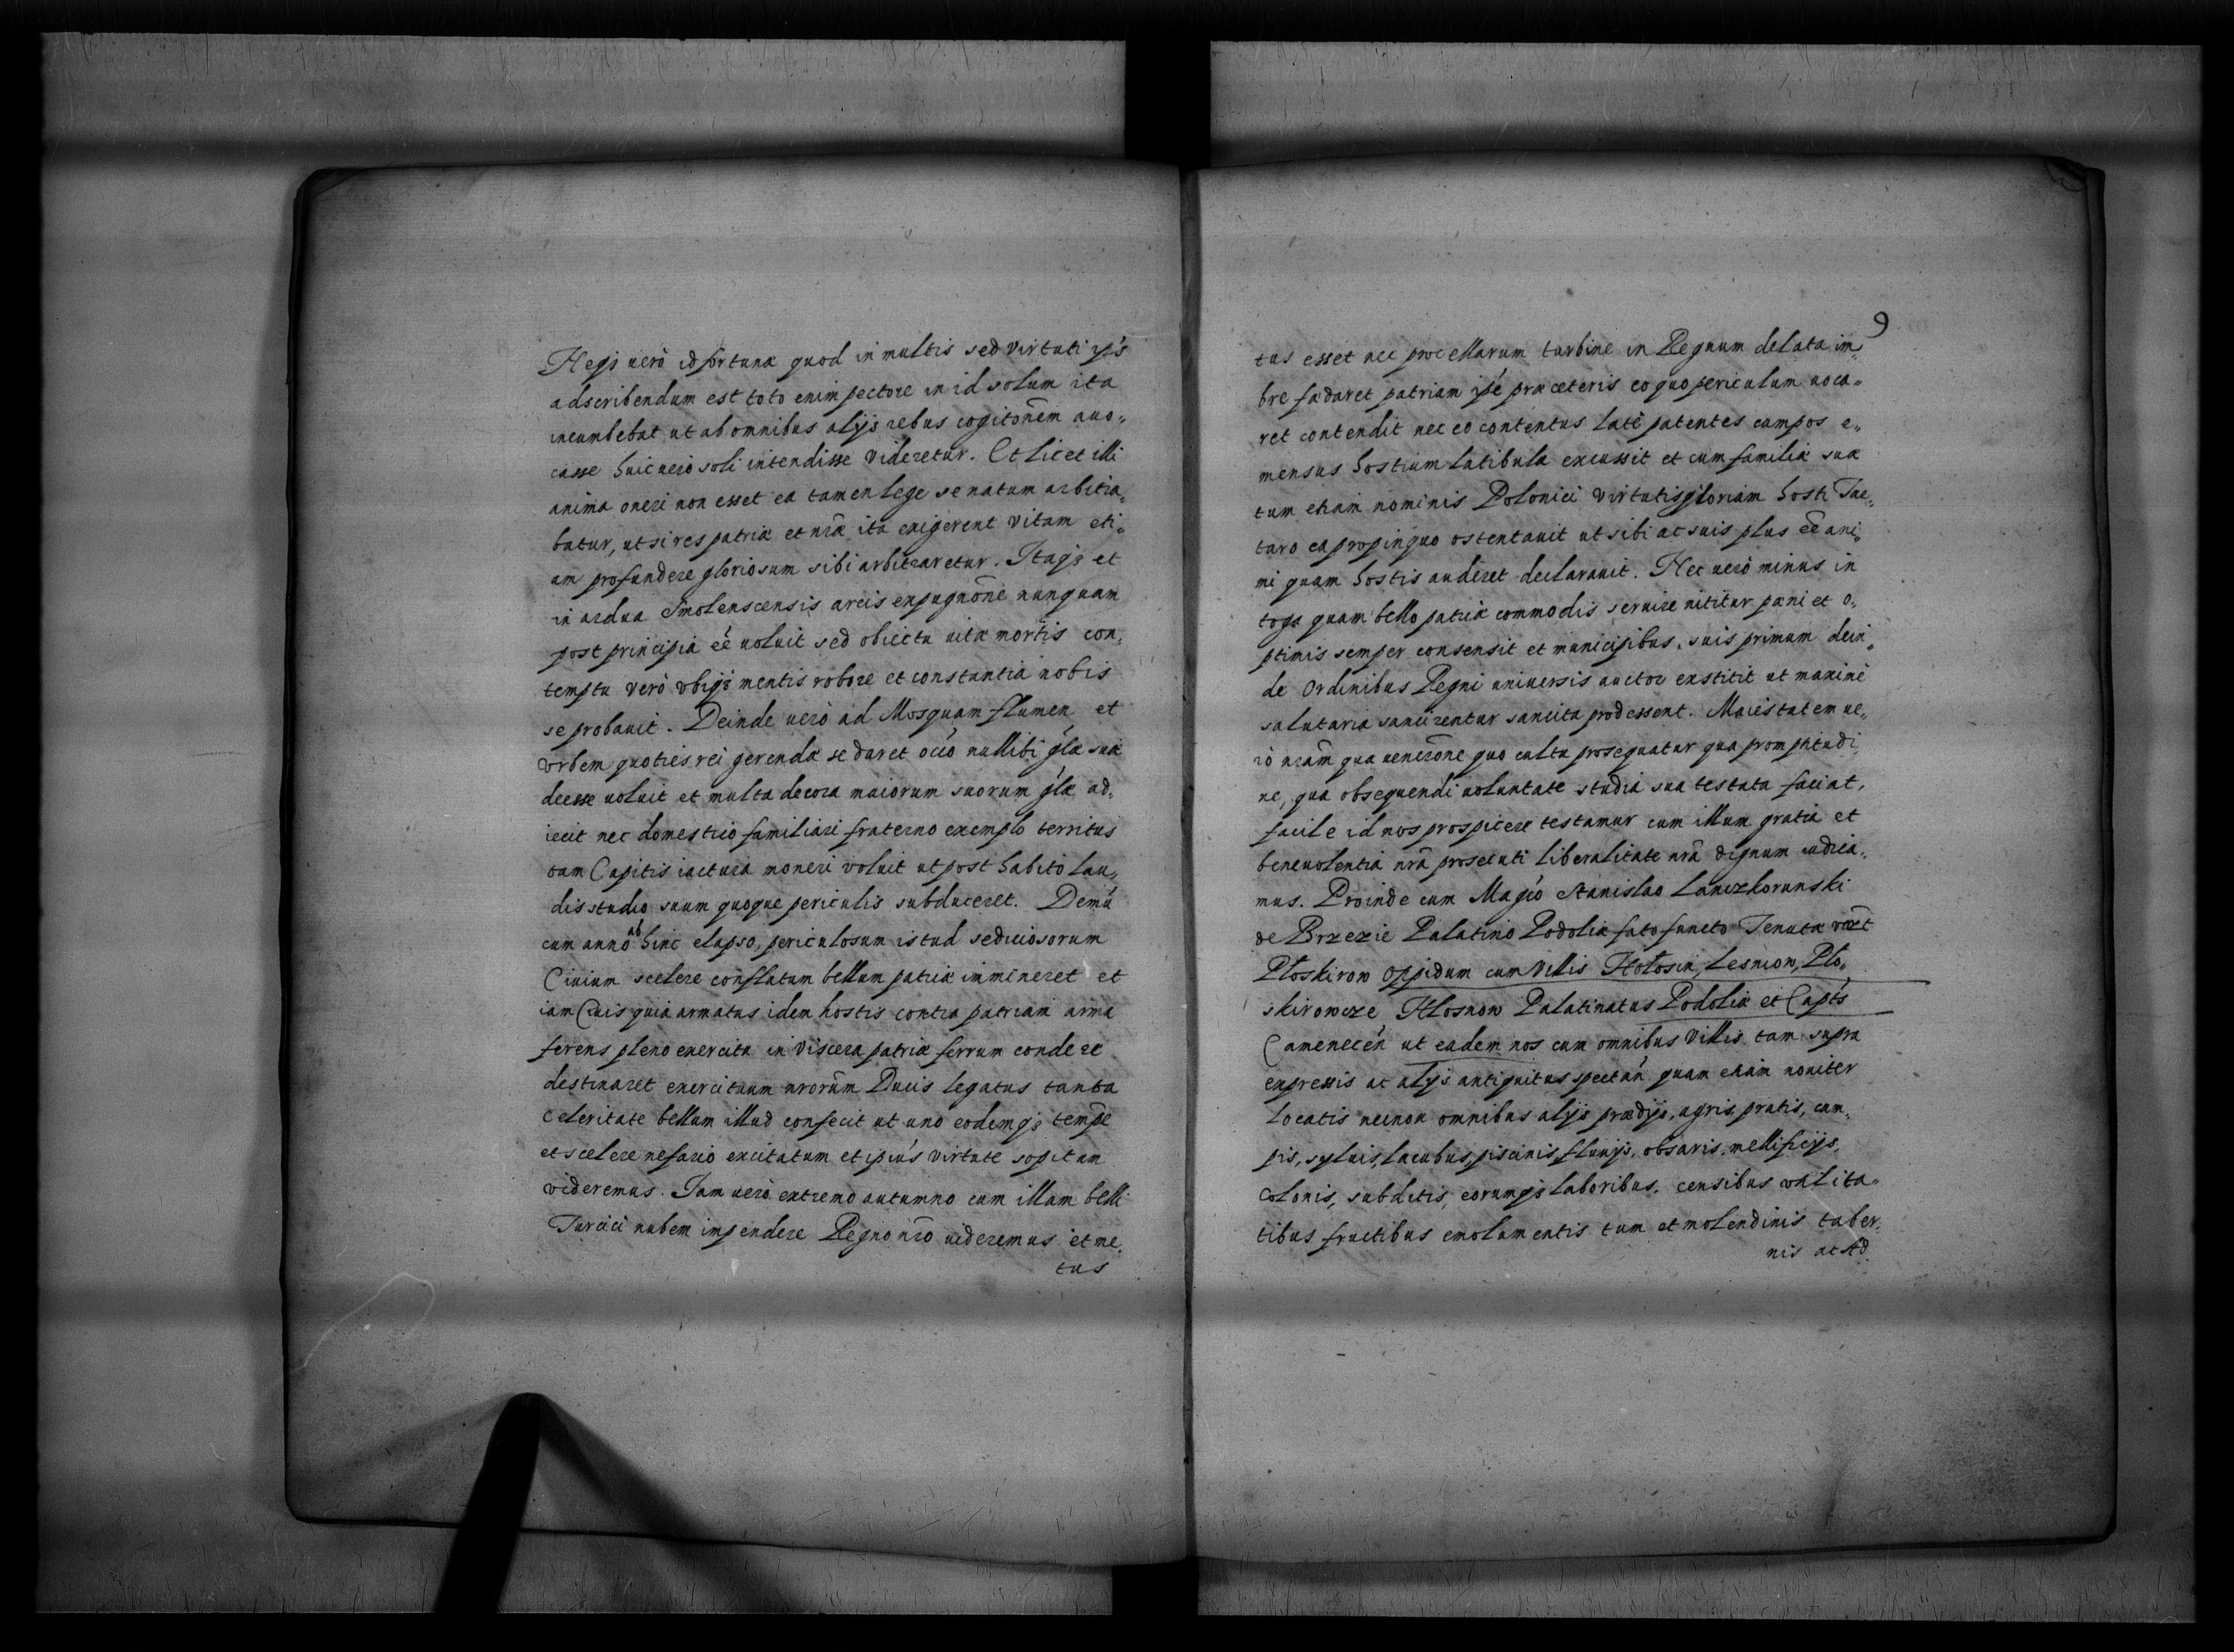 Neqȝ uerò id fortunæ quod in multis sed virtuti ip̃s
adscribendum est toto enim pectore in id solum ita
incumbebat ut ab omnibus alijs rebus cogitõnem auo„
casse huic uerò soli intendisse videretur. Et licet illi
anima oneri non esset ea tamen lege se natum arbitra„
batur, ut si res patriæ et nr̃a ita exigerent vitam eti„
am profundere gloriosum sibi arbitraretur. Itaqȝ et
in ardua Smolenscensis arcis expugnõne nunquam
post principia eẽ uoluit sed obiectu uitæ mortis con„
temptu verò ubiqȝ mentis robore et constantia nobis
se probauit. Deinde uerò ad Mosquam flumen et
vrbem quoties rei gerendæ se daret occõ nullibi gl̃æ suæ
deesse uoluit et multa decora maiorum suorum gl̃æ ad„
iecit nec domestico familiari fraterno exemplo territus
tam Capitis iactura moneri voluit ut post habito lau„
dis studio suum quoque periculis subduceret. Demũ
cum anno ab hinc elapso, periculosum istud sediciosorum
Ciuium scelere conflatum bellum patriæ immineret et
iam Ciuis quia armatus idem hostis contra patriam arma
ferens pleno exercitu in viscera patriæ ferrum condere
destinaret exercituum nrorũm Ducis legatus tanta
celeritate bellum illud confecit ut uno eodemqȝ temp̃e
et scelere nefario excitatum et ipiús virtute sopitum
videremus. Iam uerò extremo autumno cum illam belli
Turcici nubem impendere Regno nr̃o uideremus et me„
tus
9
tus esset nec procellarum turbine in Regnum delata im„
bre fædaret patriam ip̃e præ ceteris eo quo periculum uoca„
ret contendit nec eo contentus latè patentes campos e„
mensus hostium latibula excussit et cum familiæ suæ
tum etiam nominis Polonici virtutis gloriam hosti Tar„
taro ea propinquo ostentauit ut sibi ac suis plus eẽ ani„
mi quam hostis auderet declarauit. Nec uerò minus in
toga quam bello patriæ commodis seruire nititur pæni et o„
ptimis semper consensit et municipibus, suis primum dein„
de Ordinibus Regni uniuersis auctor exstitit ut maximè
salutaria sancirentur sancita prodessent. Maiestatem ue„
rò nrãm qua uenerõne quo cultu prosequatur qua promptitudi„
ne, qua obsequendi uoluntate studia sua testata faciat,
facile id nos prospicere testamur cum illum gratia et
beneuolentia nr̃a prosecuti liberalitate nr̃a dignum iudica„
mus. Proinde cum Magco Stanislao Lanczkorunski
de Brzezie Palatino Podoliæ fato functo Tenuta
Płoskirow oppidum cum villis Hołosin, Lesniow, Pło„
skirowcze Hłosnow Palatinatus Podoliæ et Capts
Camenecen̉ ut eadem nos cum omnibus villis tam supra
expressis ac alijs antiquitus spectan̉ quam etiam nouiter
locatis necnon omnibus alijs prædijs, agris pratis, cam„
pis, syluis, lacubus, piscinis, fluuijs, obsaris, mellificijs,
colonis, subditis, eorumqȝ laboribus, censibus vtilita„
tibus fructibus emolumentis tum et molendinis taber„
nis ac Ad